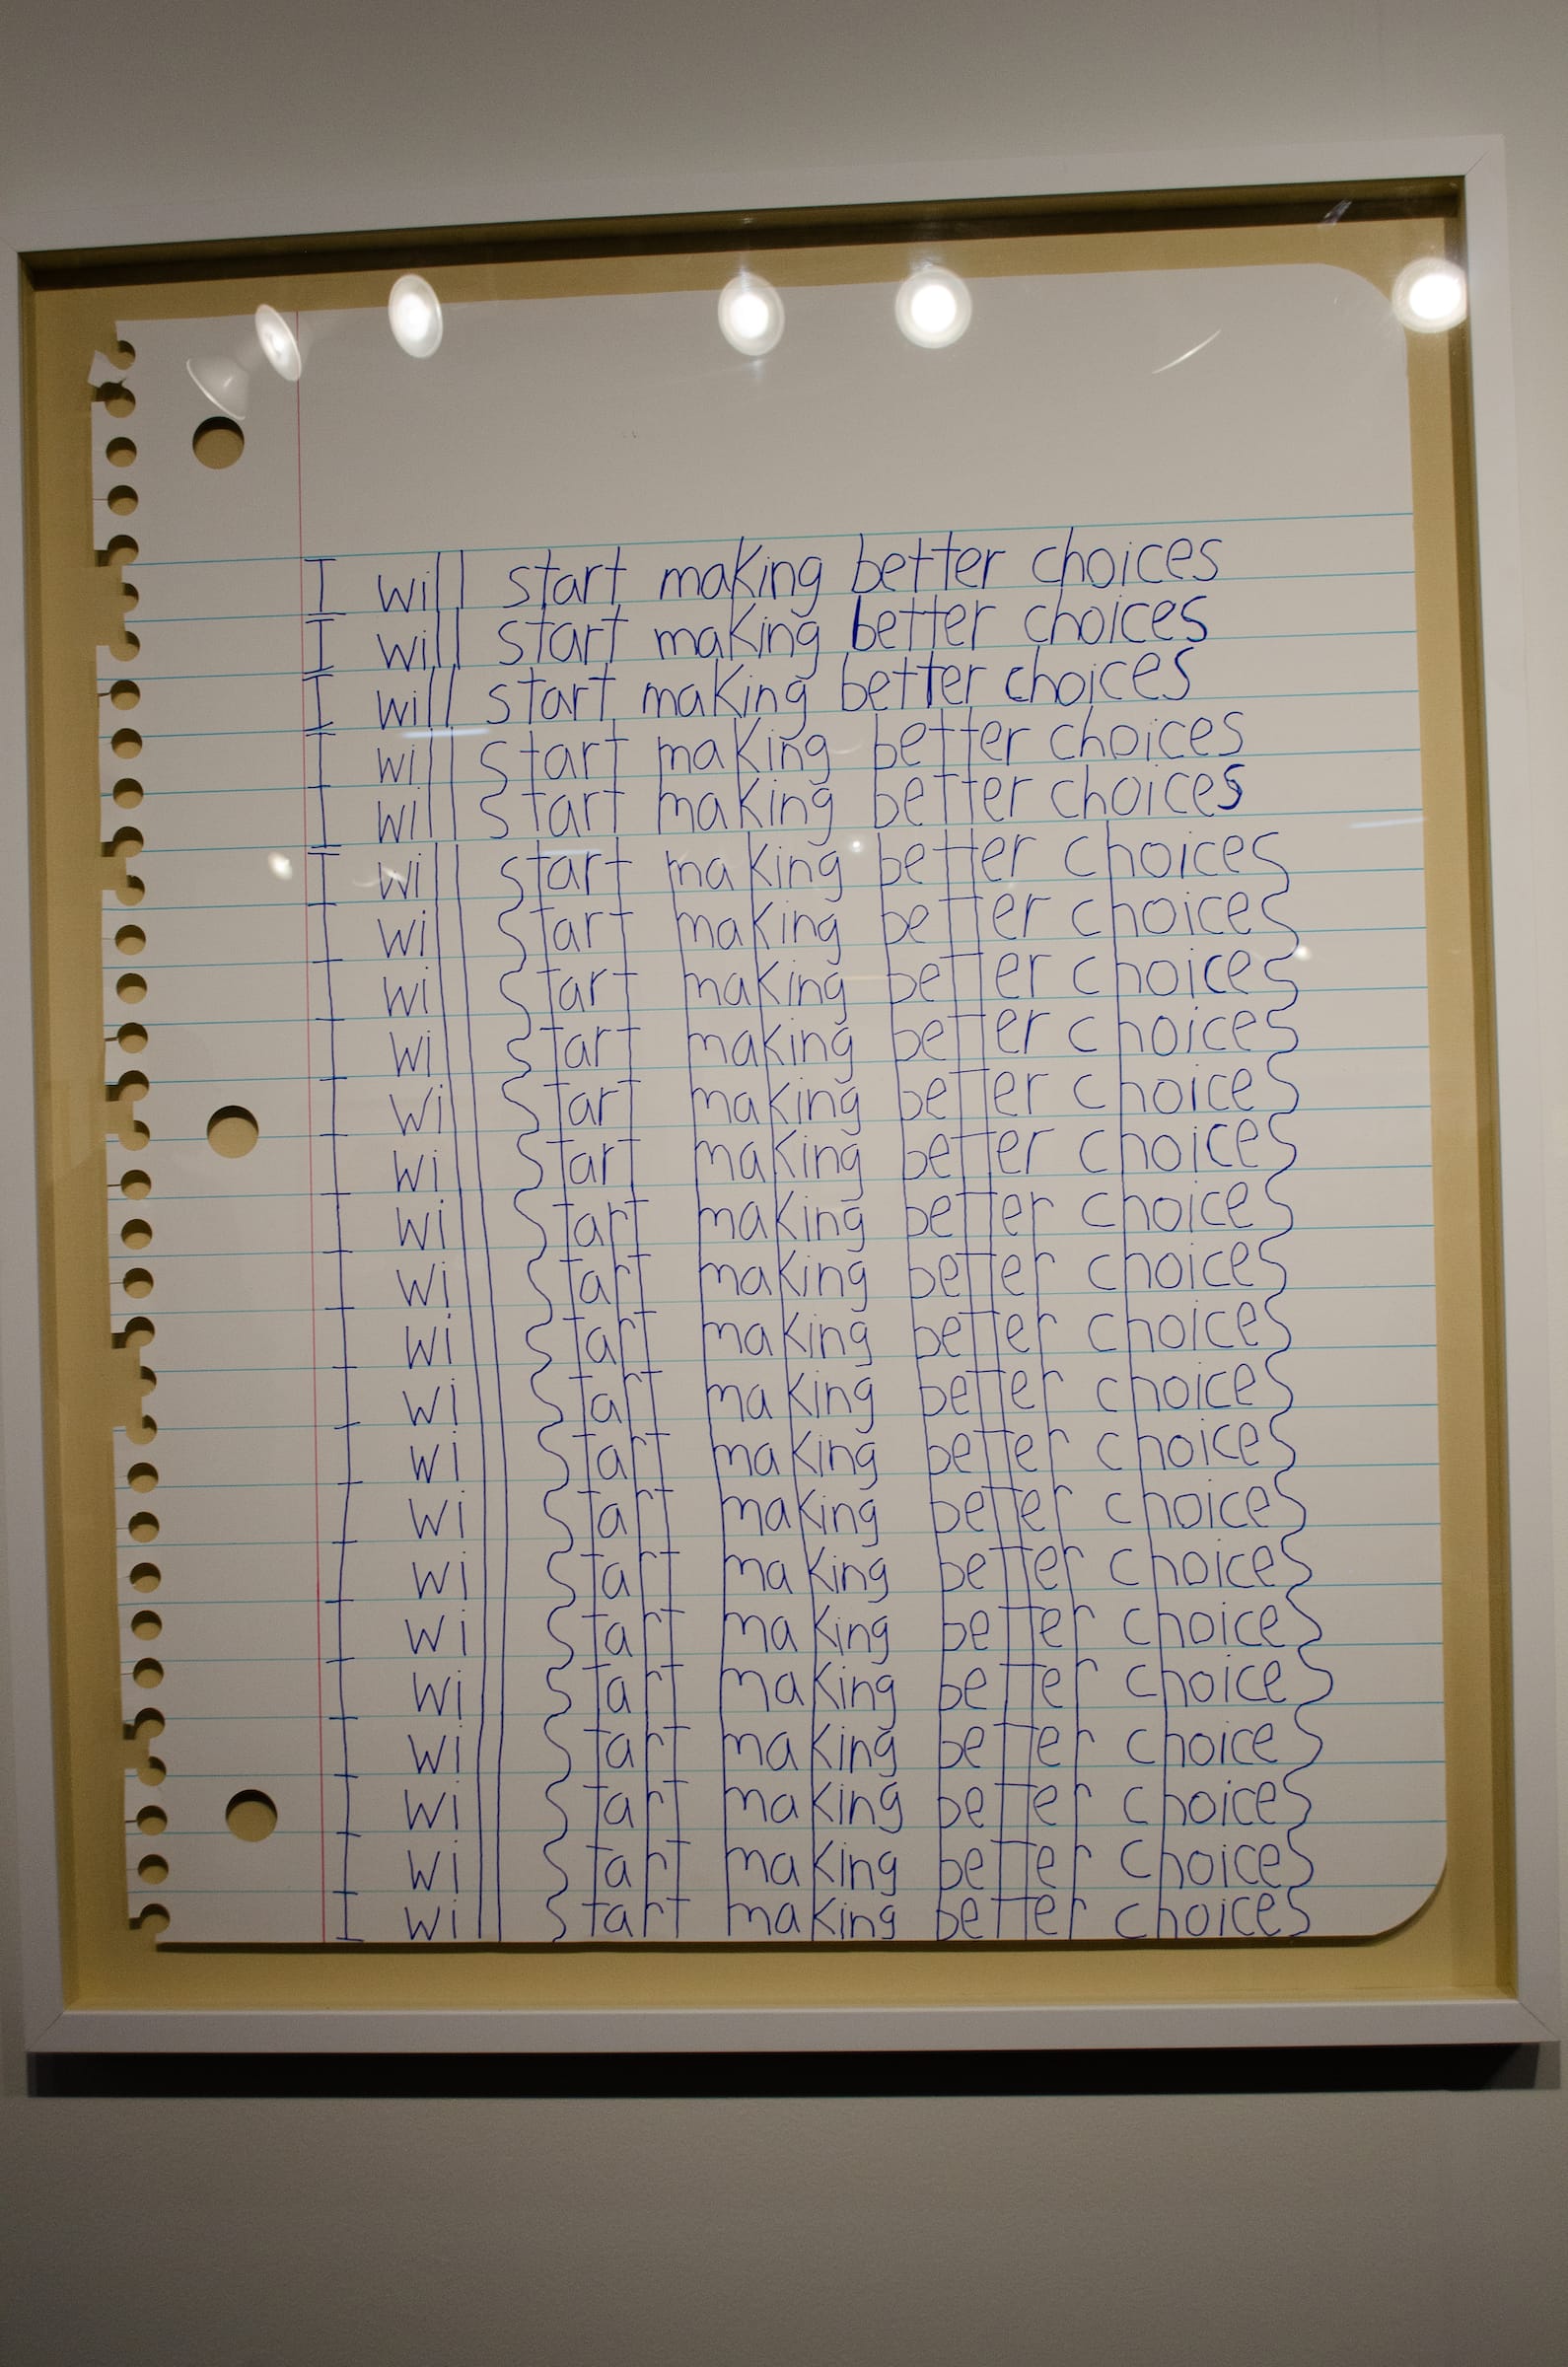 I will start making better choices
I will start making better choices
I will start making better choices
I will start making better choices
I will start making better choices
I will start making better choices
I will start making better choices
I will start making better choices
I will start making better choices
I will start making better choices
I will start making better choices
I will start making better choices
I will start making better choices
I will start making better choices
I will start making better choices
I will start making better choices
I will start making better choices
I will start making better choices
I will start making better choices
I will start making better choices
I will start making better choices
I will start making better choices
I will start making better choices
I will start making better choices